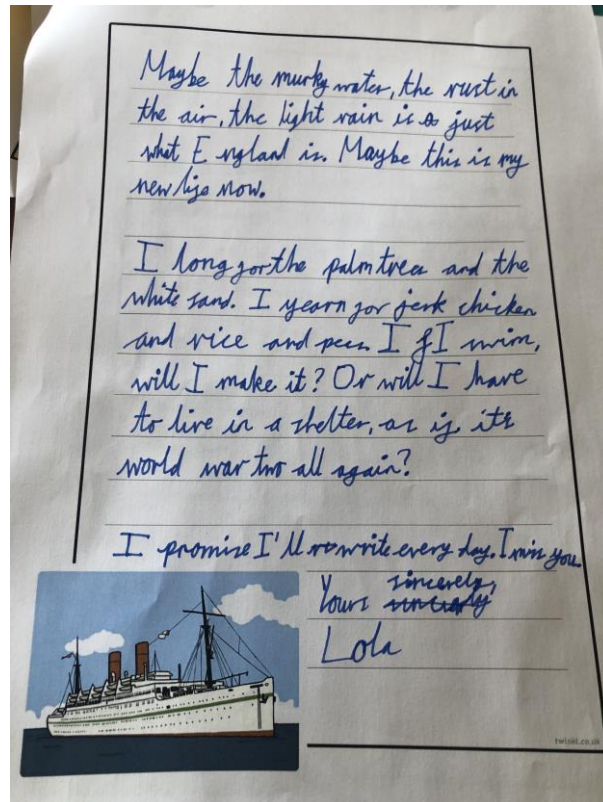 Maybe the murky water, the rust in
the air, the light rain is just
what England is. Maybe this is my
new life now.
I long for the palm trees and the
white sand. I yearn for jerk chicken
and rice and peas. If I swim,
will I make it? Or will I have
to live in a shelter, as if its
world war two all again?
I promise I'll write every day. I miss you.
sincerely,
Yours sincerly
Lola
twinkl.co.uk